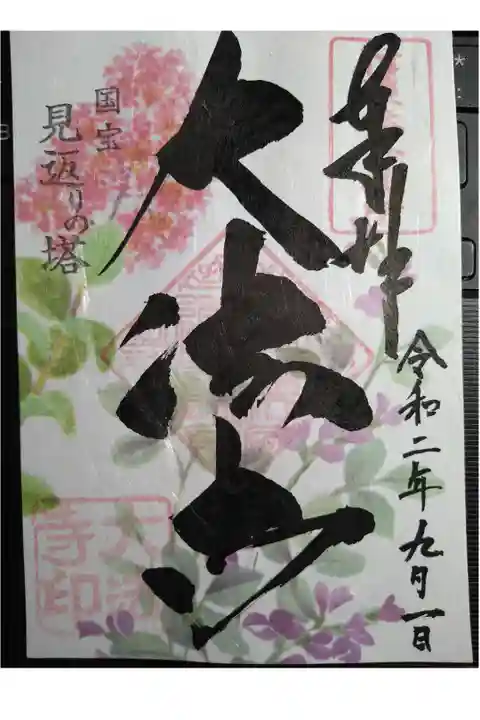 奉拝
令和二年九月一日
大法寺
国宝
見返りの塔
大法
寺印